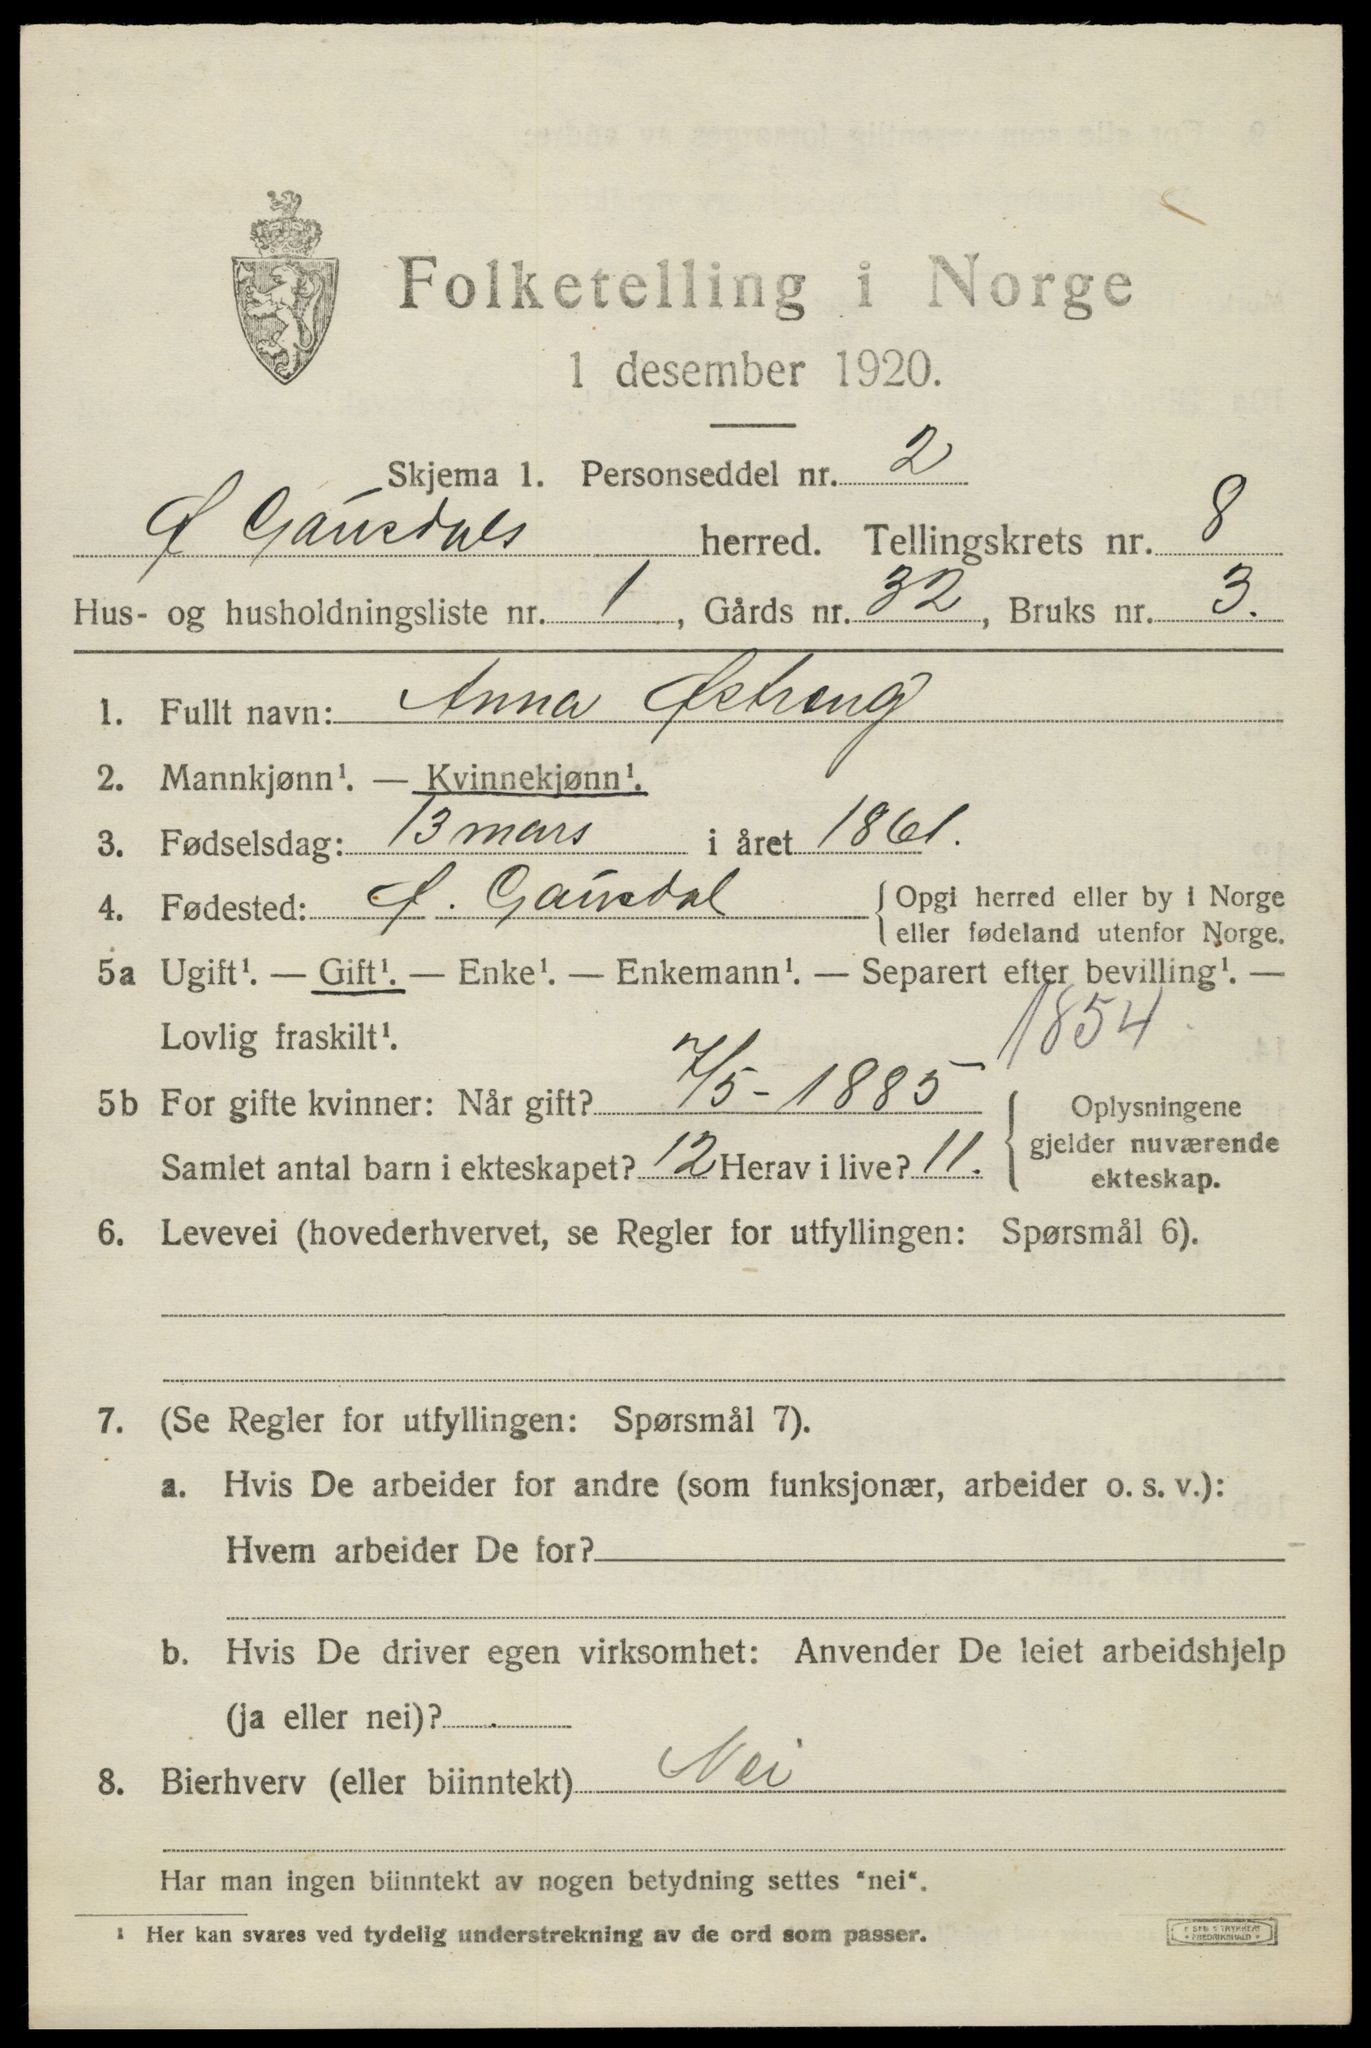 Folketelling i Norge
1 desember 1920.
Skjema 1. Personseddel nr. 2
Ø Gausdals herred. Tellingskrets nr. 8
Hus- og husholdningsliste nr. 1, Gårds nr. 32, Bruks nr. 3.
1. Fullt navn: Anna Østreng
2. Mannkjønn¹. — Kvinnekjønn¹.
3. Fødselsdag: 13 mars i året 1861.
4. Fødested: Ø. Gausdal { Opgi herred eller by i Norge
eller fødeland utenfor Norge.
5a Ugift¹. — Gift¹. — Enke¹. — Enkemann¹. — Separert efter bevilling¹. —
Lovlig fraskilt¹. 1854
5b For gifte kvinner: Når gift? 7/5-1885 { Oplysningene
gjelder nuværende
ekteskap.
Samlet antal barn i ekteskapet? 12 Herav i live? 11.
6. Levevei (hovederhvervet, se Regler for utfyllingen: Spørsmål 6).
7. (Se Regler for utfyllingen: Spørsmål 7).
a. Hvis De arbeider for andre (som funksjonær, arbeider o. s. v.):
Hvem arbeider De for?
b. Hvis De driver egen virksomhet: Anvender De leiet arbeidshjelp
(ja eller nei)?
8. Bierhverv (eller biinntekt) Nei
Har man ingen biinntekt av nogen betydning settes "nei".
¹ Her kan svares ved tydelig understrekning av de ord som passer.